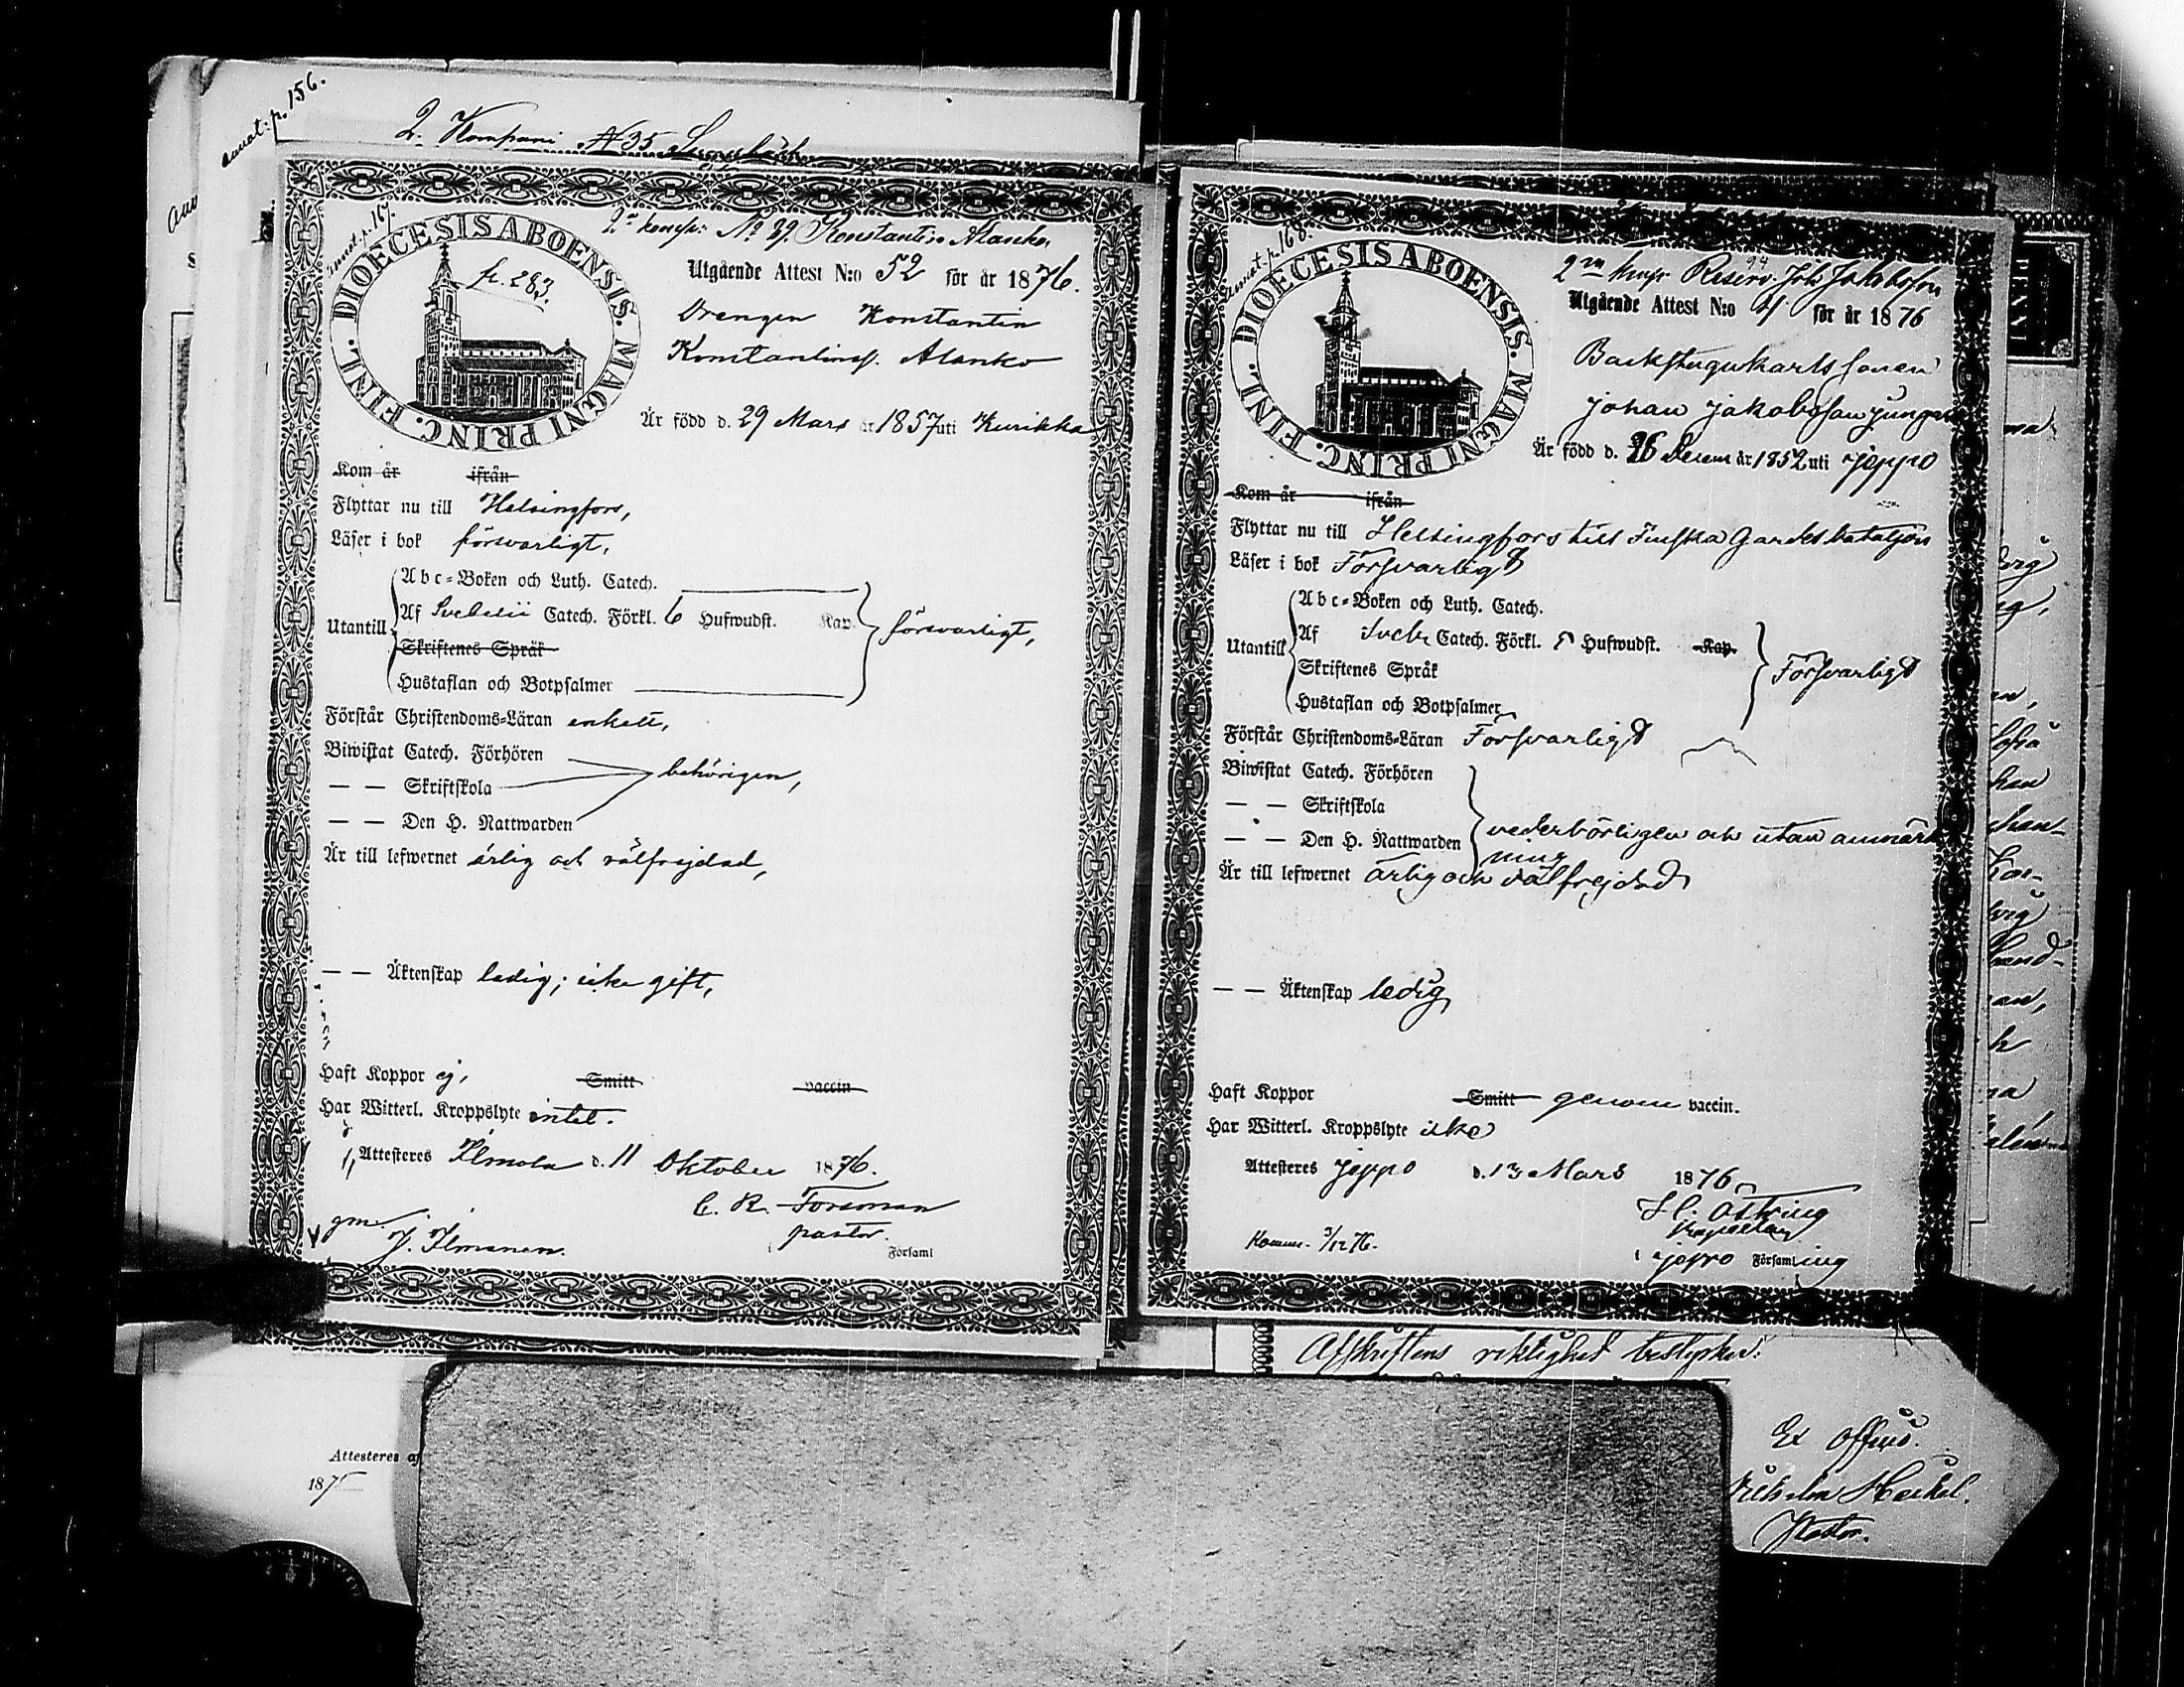 annot. p. 156.
2. Kompani N 35
annot. p. 167.
2a komp: No 29. Konstantin Alanko,
DIOECESIS ABOENSIS. MAGNI PRINC. FINL.
fr. 283.
Utgående Attest N:o 52 för år 1876.
Drengen Konstantin
Konstantinsf. Alanko
Är född d. 29 Mars år 1857 uti Kurikka
Kom år ifrån
Flyttar nu till Helsingfors,
Läser i bok försvarligt,
Utantill
Abc-Boken och Luth. Catech.
Af Svebelii Catech. Förkl. 6 Hufwudst. Kap.
försvarligt,
Skriftenes Språk
Hustaflan och Botpsalmer
Förstår Christendoms-Läran enkelt,
Biwistat Catech. Förhören
— — Skriftskola
behörigen,
— — Den H. Nattwarden
Är till lefwernet ärlig och välfrejdad,
— — Äktenskap ledig; icke gift,
Haft Koppor ej, Smitt vaccin
Har Witterl. Kroppslyte intet.
Attesteres Ilmola d. 11 Oktober 1876.
C. R. Forsman
pastor.
gm. J. Ilmonen.
i Församl
annot. p. 168.
2ra komp. Reserv. 94 Joh. Jakobsson
DIOECESIS ABOENSIS. MAGNI PRINC. FINL.
Utgående Attest N:o 4 för år 1876
Backstugukarlssonen
Johan Jakobsson
Är född d. 26 Decem år 1852 uti Jeppo
Kom år ifrån
Flyttar nu till Helsingfors till Finska Gardesbataljon
Läser i bok Försvarligt
Utantill
Abc-Boken och Luth. Catech.
Af Sveb. Catech. Förkl. 5 Hufwudst. Kap.
Skriftenes Språk
Försvarligt
Hustaflan och Botpsalmer
Förstår Christendoms-Läran Försvarligt
Biwistat Catech. Förhören
— — Skriftskola
— — Den H. Nattwarden
vederbörligen och utan anmärk
ning
Är till lefwernet ärlig och välfrejdad
— — Äktenskap ledig
Haft Koppor Smitt genom vaccin.
Har Witterl. Kroppslyte icke
Attesteres Jeppo d. 13 Mars 1876
Östring
Kapellan
Komm. 3/12 76.
i Jeppo Församling
Afskriftens riktighet bestyrker:
Ex officio.
Pastor.
Attesteres af
187